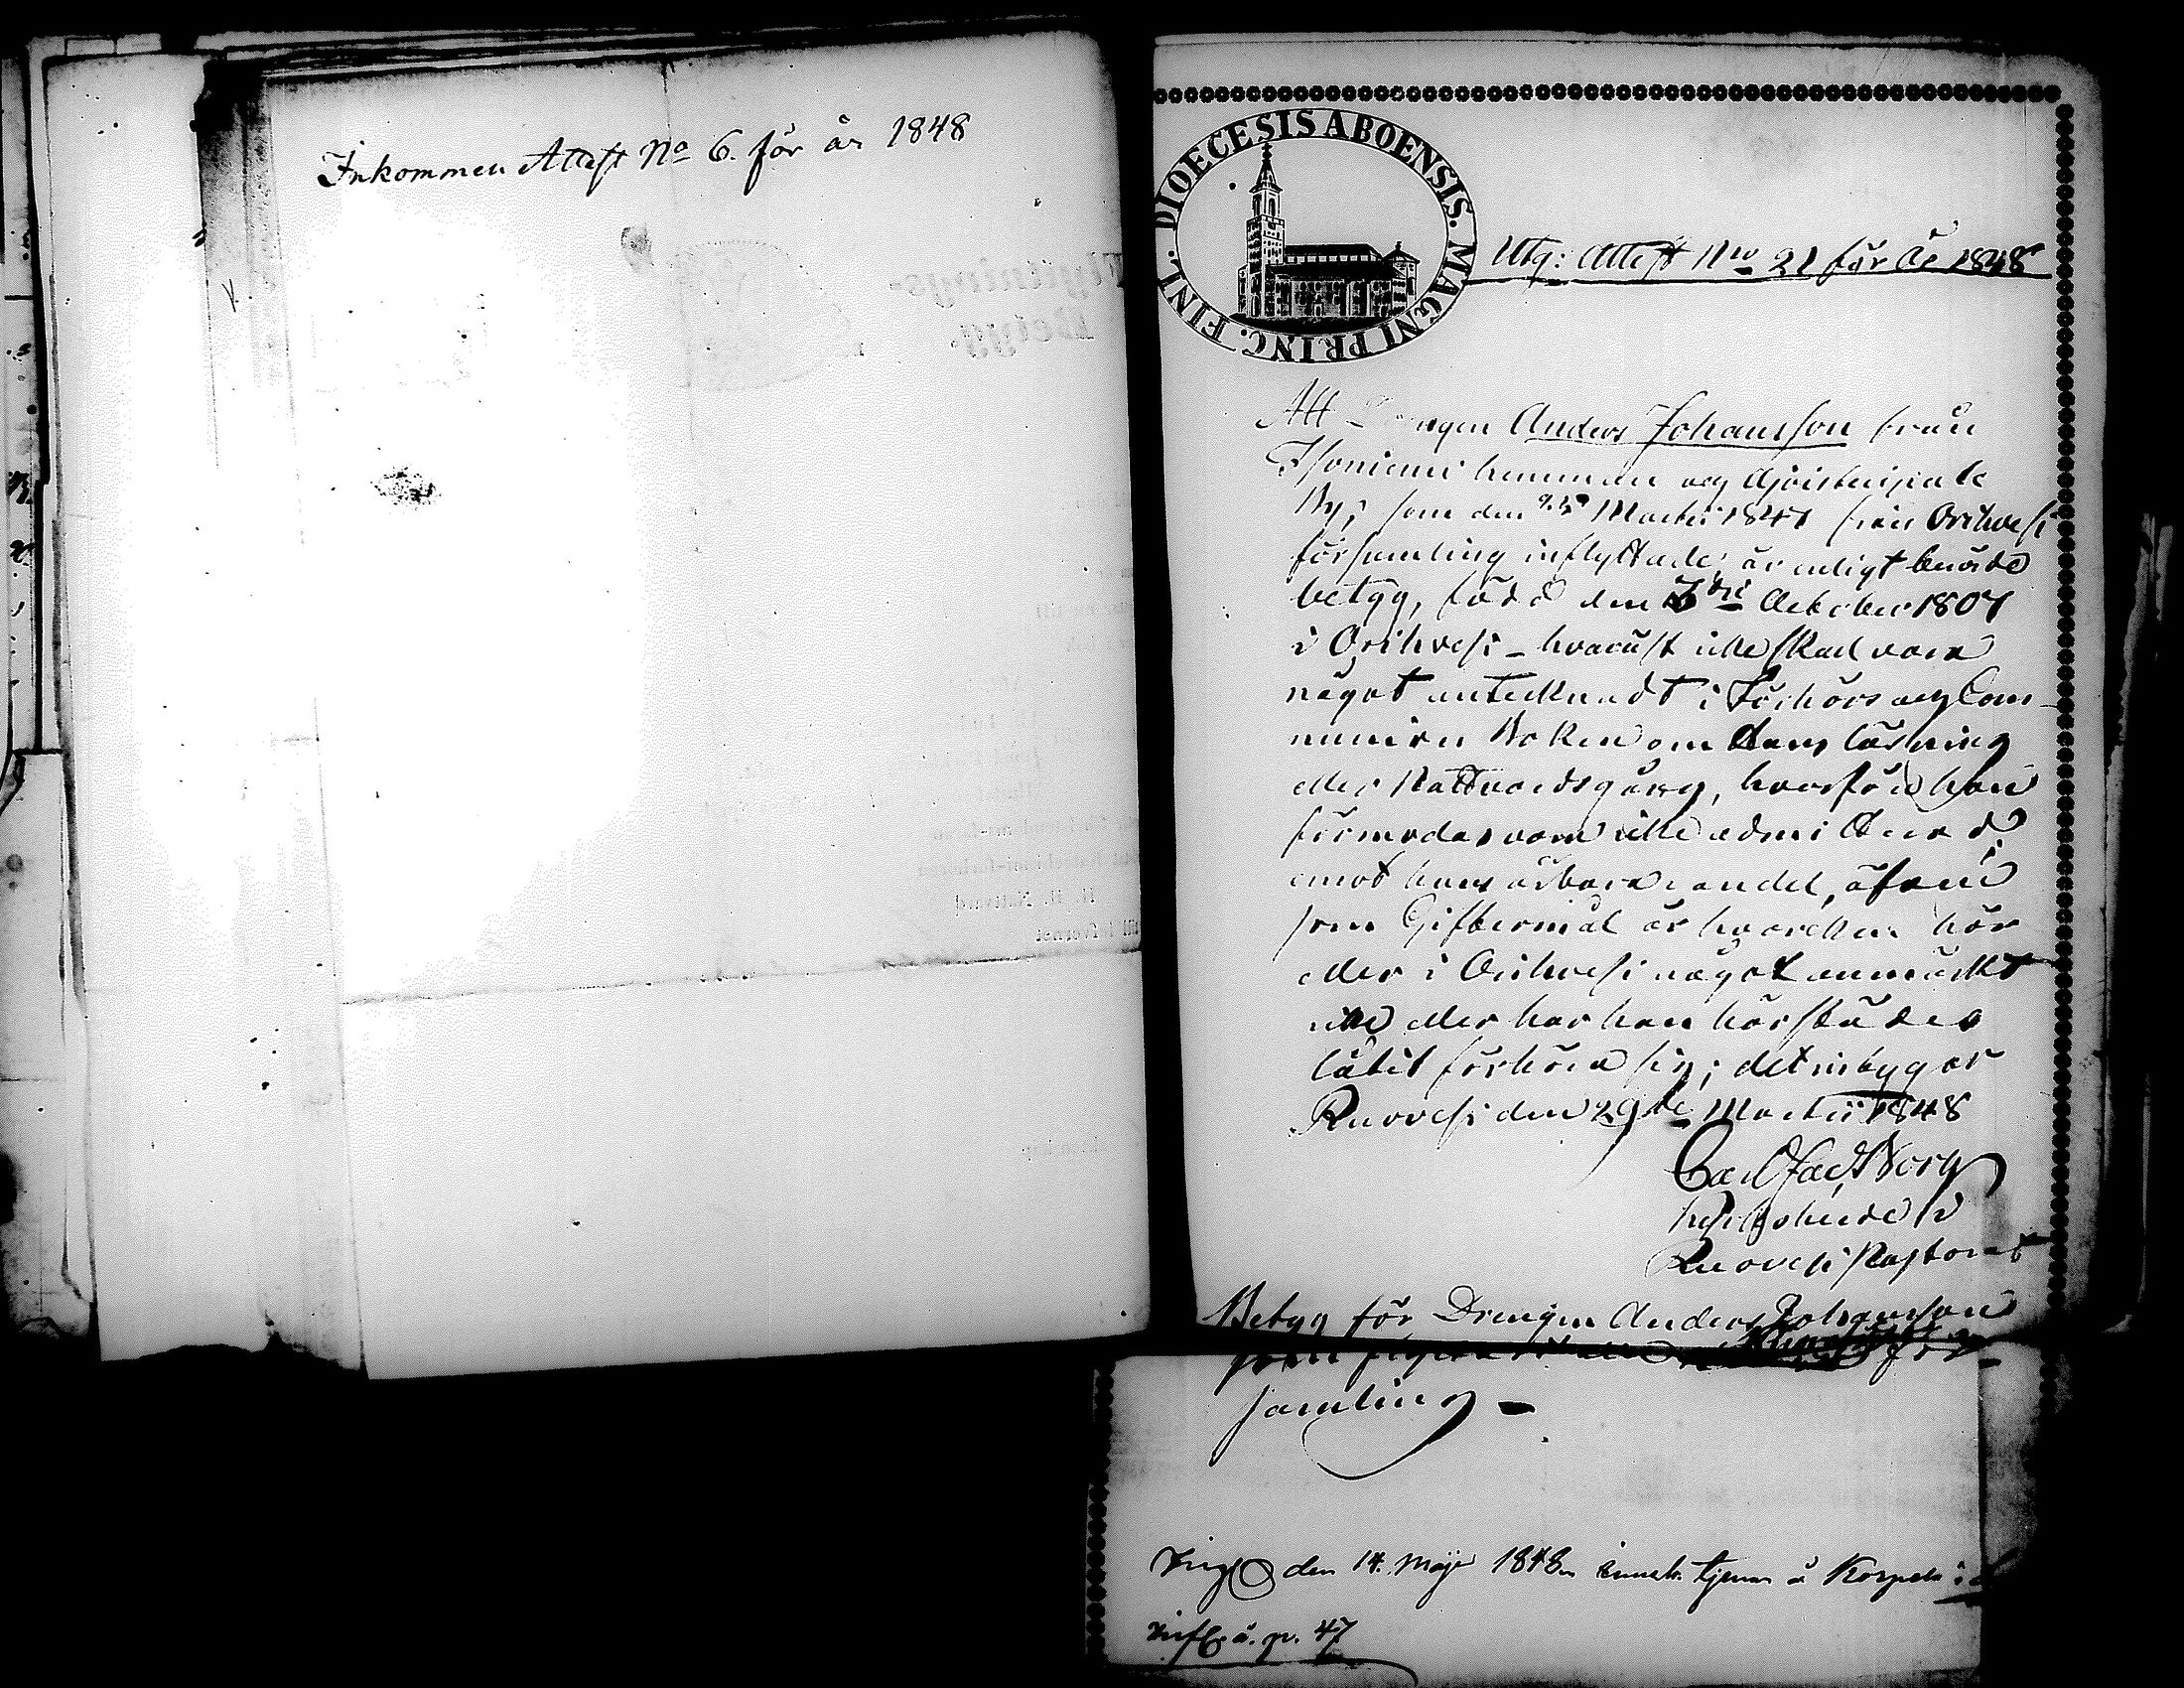 Inkommen Attest No 6. för år 1848
DIOECESIS ABOENSIS. MAGNI PRINC. FINL.
Utg: Attest Nro 21 för År 1848
Att Drengen Anders Johansson från
hemman och
By, som den Martii 1841 från Orihvesi
församling inflyttade, är enligt
betyg, född den October 1807
i Orihvesi - hvaräst icke skall vara
något antecknadt i Förhörs och Com-
munion Boken om hans läsning
eller Nattvardsgång, hvarföre han
förmodas vara icke admitterad
emot hans ärbara vandel, äfven
som Giftermål är hvarcken här
eller i Orihvesi något anmärkt
icke eller har han härstädes
låtit förhöra sig; det intygar
Ruovesi den 29de Martii 1848
Carl Borg
Ruovesi Pastorat
Betyg för Drengen Anders Johansson
som flyttar till för
samling -
den 14. Maji 1848. tjenar å Korpela
å. p. 47